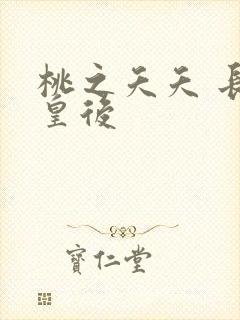 桃之夭夭 長
皇後
寶仁堂